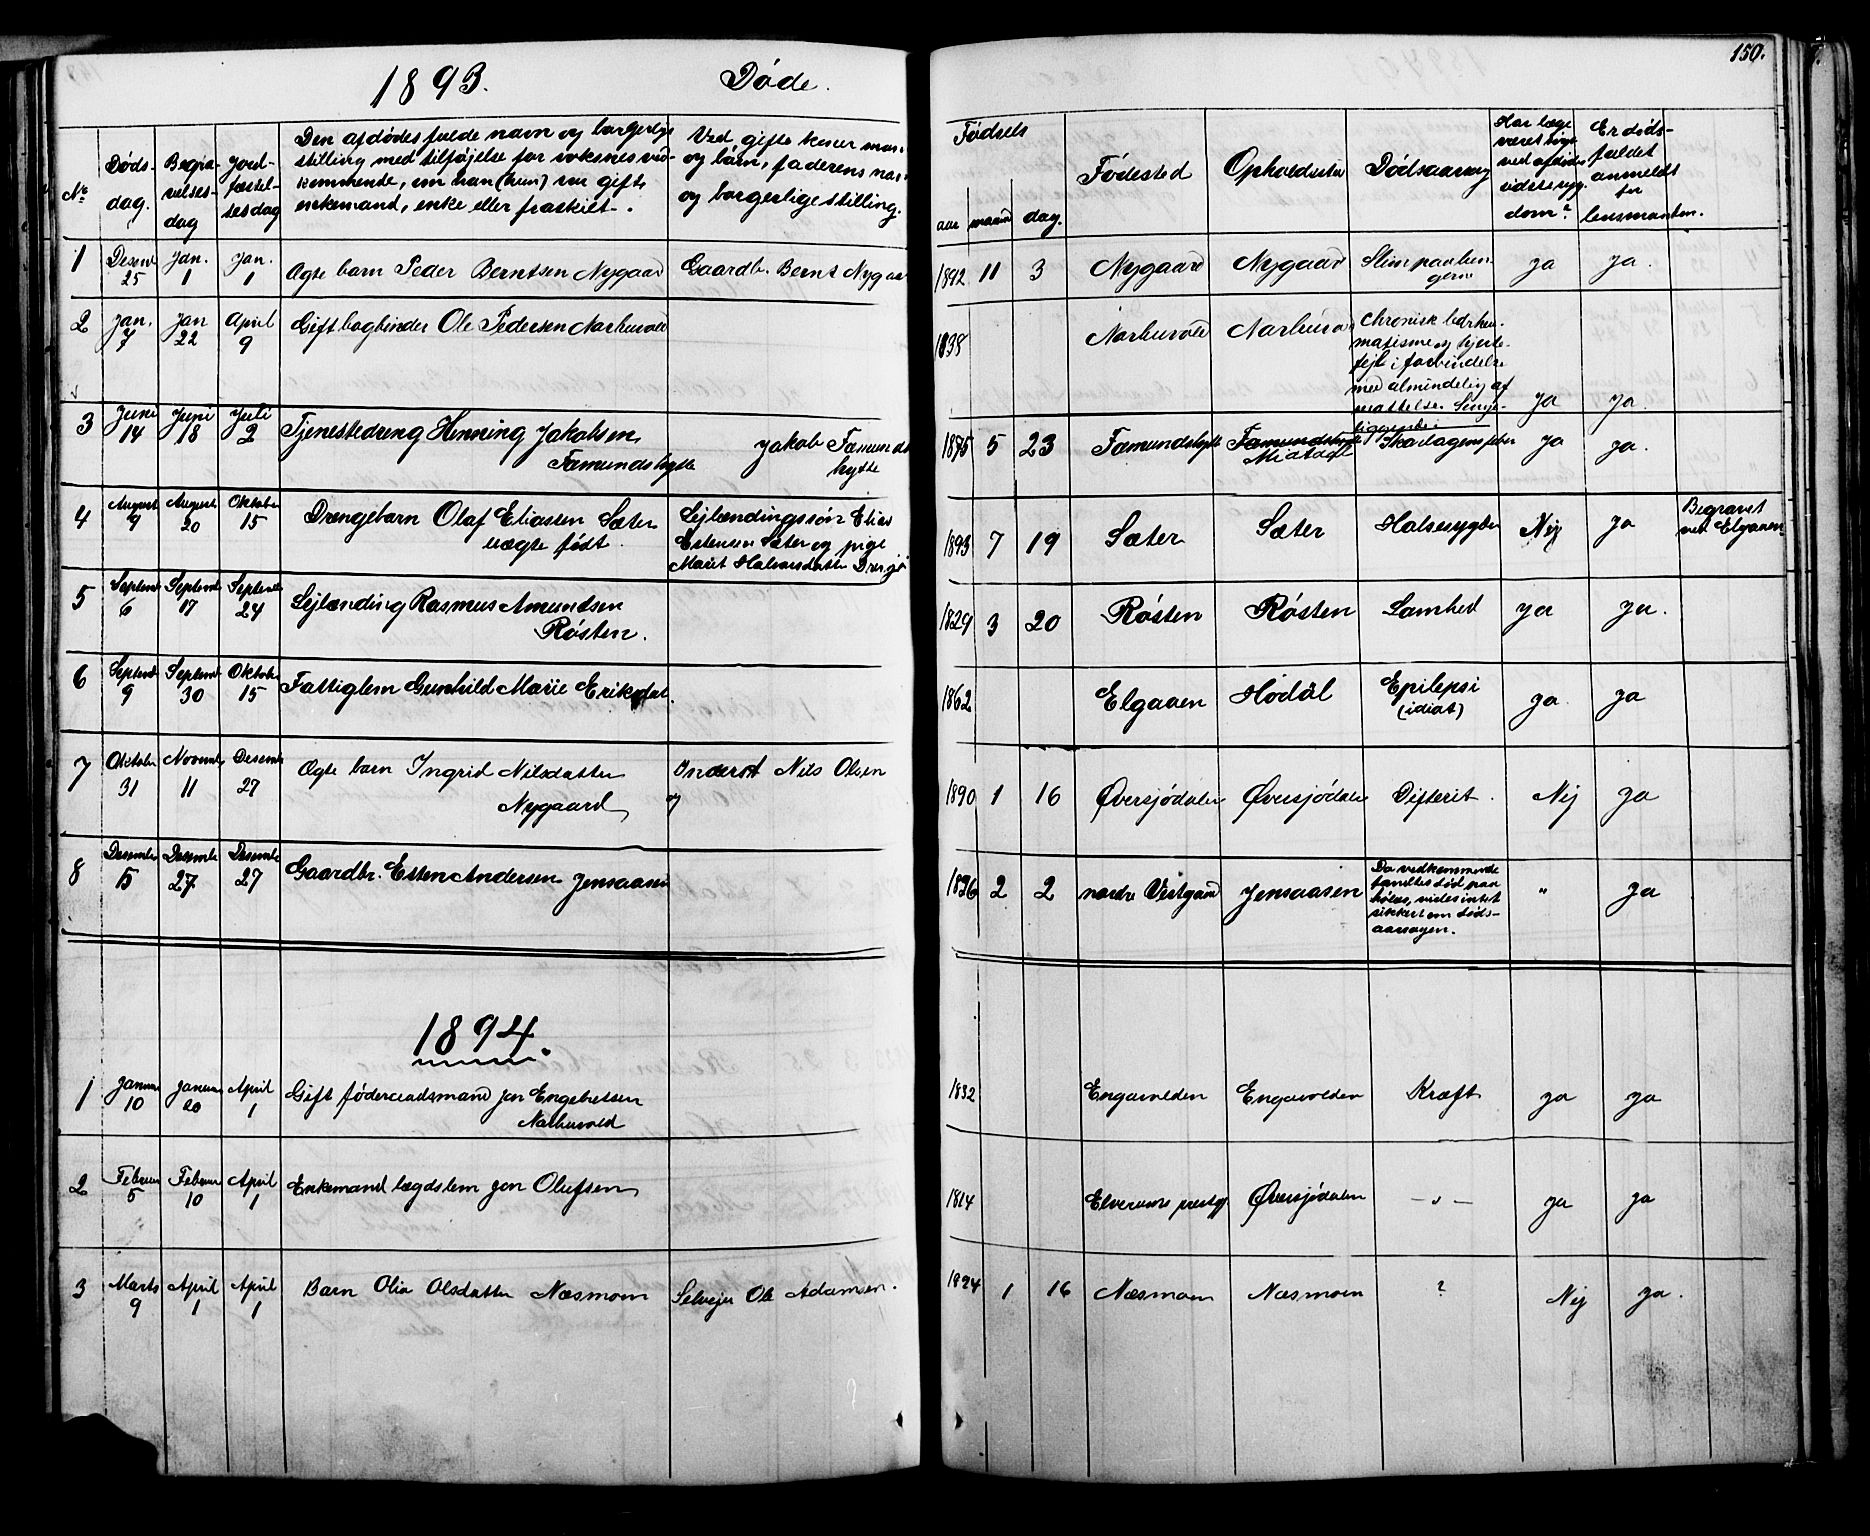 1893. Døde.
150.
No
Dødsdag.
Begravelsesdag
Jordfæstelsesdag
Den afdødes fulde navn og borgerlige
stilling med tilføjelse for voksnes ved-
kommende, om han (hun) var gift
enkemand, enke eller fraskilt.
Ved gifte koner man
og børn, faderens na
og borgerlige stilling.
Fødsels
aar maaned dag.
Fødested
Opholdssted
Dødsaarsag
Har læge
været
ved
dom?
Er døds-
faldet
anmeldt
for
lensmanden.
1 Desemb 25 Jan. 1 Jan. 1 Ægte barn Peder Berntsen Nygaard Gaardbr. Bernt Nygaa 1892 11 3 Nygaard Nygaard Slim paa lungerne ja ja.
2 Jan. 7 Jan 22 April 9 Gift bogbinder Ole Pedersen Narbuvold 1838 Narbuvold Narbuvo
Chronisk
og hjerte-
fejl i forbindelse
med almindelig af
mattelse. Senge-
liggende.
ja ja.
3 Juni 14 Juni 18 Juli 2 Tjenestedreng Henning Jakobsen
Fæmundshytte
Jakob Fæmunds
hytte
1875 5 23 Fæmundshytte Fæmundshytte
Skarlagensfeber ja ja.
4 August 9 August 20 Oktober 15 Drengebarn Olaf Eliassen Sæter
uægte født.
Lejlændingssøn Elias
Estensen Sæter og pige
Marit Halvorsdatter
1893 7 19 Sæter Sæter Halsesygdom Nej ja
Begravet
ved Elgaaen
5 Septemb 6 Septemb 17 Septemb 24 Lejlænding Rasmus Amundsen
Røsten.
1829 3 20 Røsten Røsten ja ja.
6 Septemb 9 Septemb 30 Oktober 15 Fattiglem Gunhild Marie Eriksdat. 1862 Elgaaen Hodäl Epilepsi
(idiot)
ja ja
7 Oktober 31 Novemb 11 Desemb 27 Ægte barn Ingrid Nilsdatter
Nygaard
Inderst Nils Olsen
1890 1 16 Øversjødalen Øversjødalen Difterit. Nej ja
8 Desember 15 Desembe 27. Desembe 27 Gaardbr. Esten Andersen Jensaasen 1826 2 2 nordre Vestgaard Jensaasen
Da vedkommende
fandtes død paa
vides intet
sikkert om døds-
aarsagen.
" ja
1894.
1 Januar 10 Januar 20 April 1 Gift føderaadsmand Jon Engebretsen
Narbuvold
1832 Engavolden Engavolden Kræft ja ja
2 Februar 5 Februar 10 April 1 Enkemand lægdslem Jon Olufsen 1814 Elverums prestgj. Øversjødalen — " — ja ja
3 Marts 9 April 1 April 1 Barn Olia Olsdatter Næsmoen Selvejer Ole Adamsen. 1894 1 16 Næsmoen Næsmoen ? Nej ja.